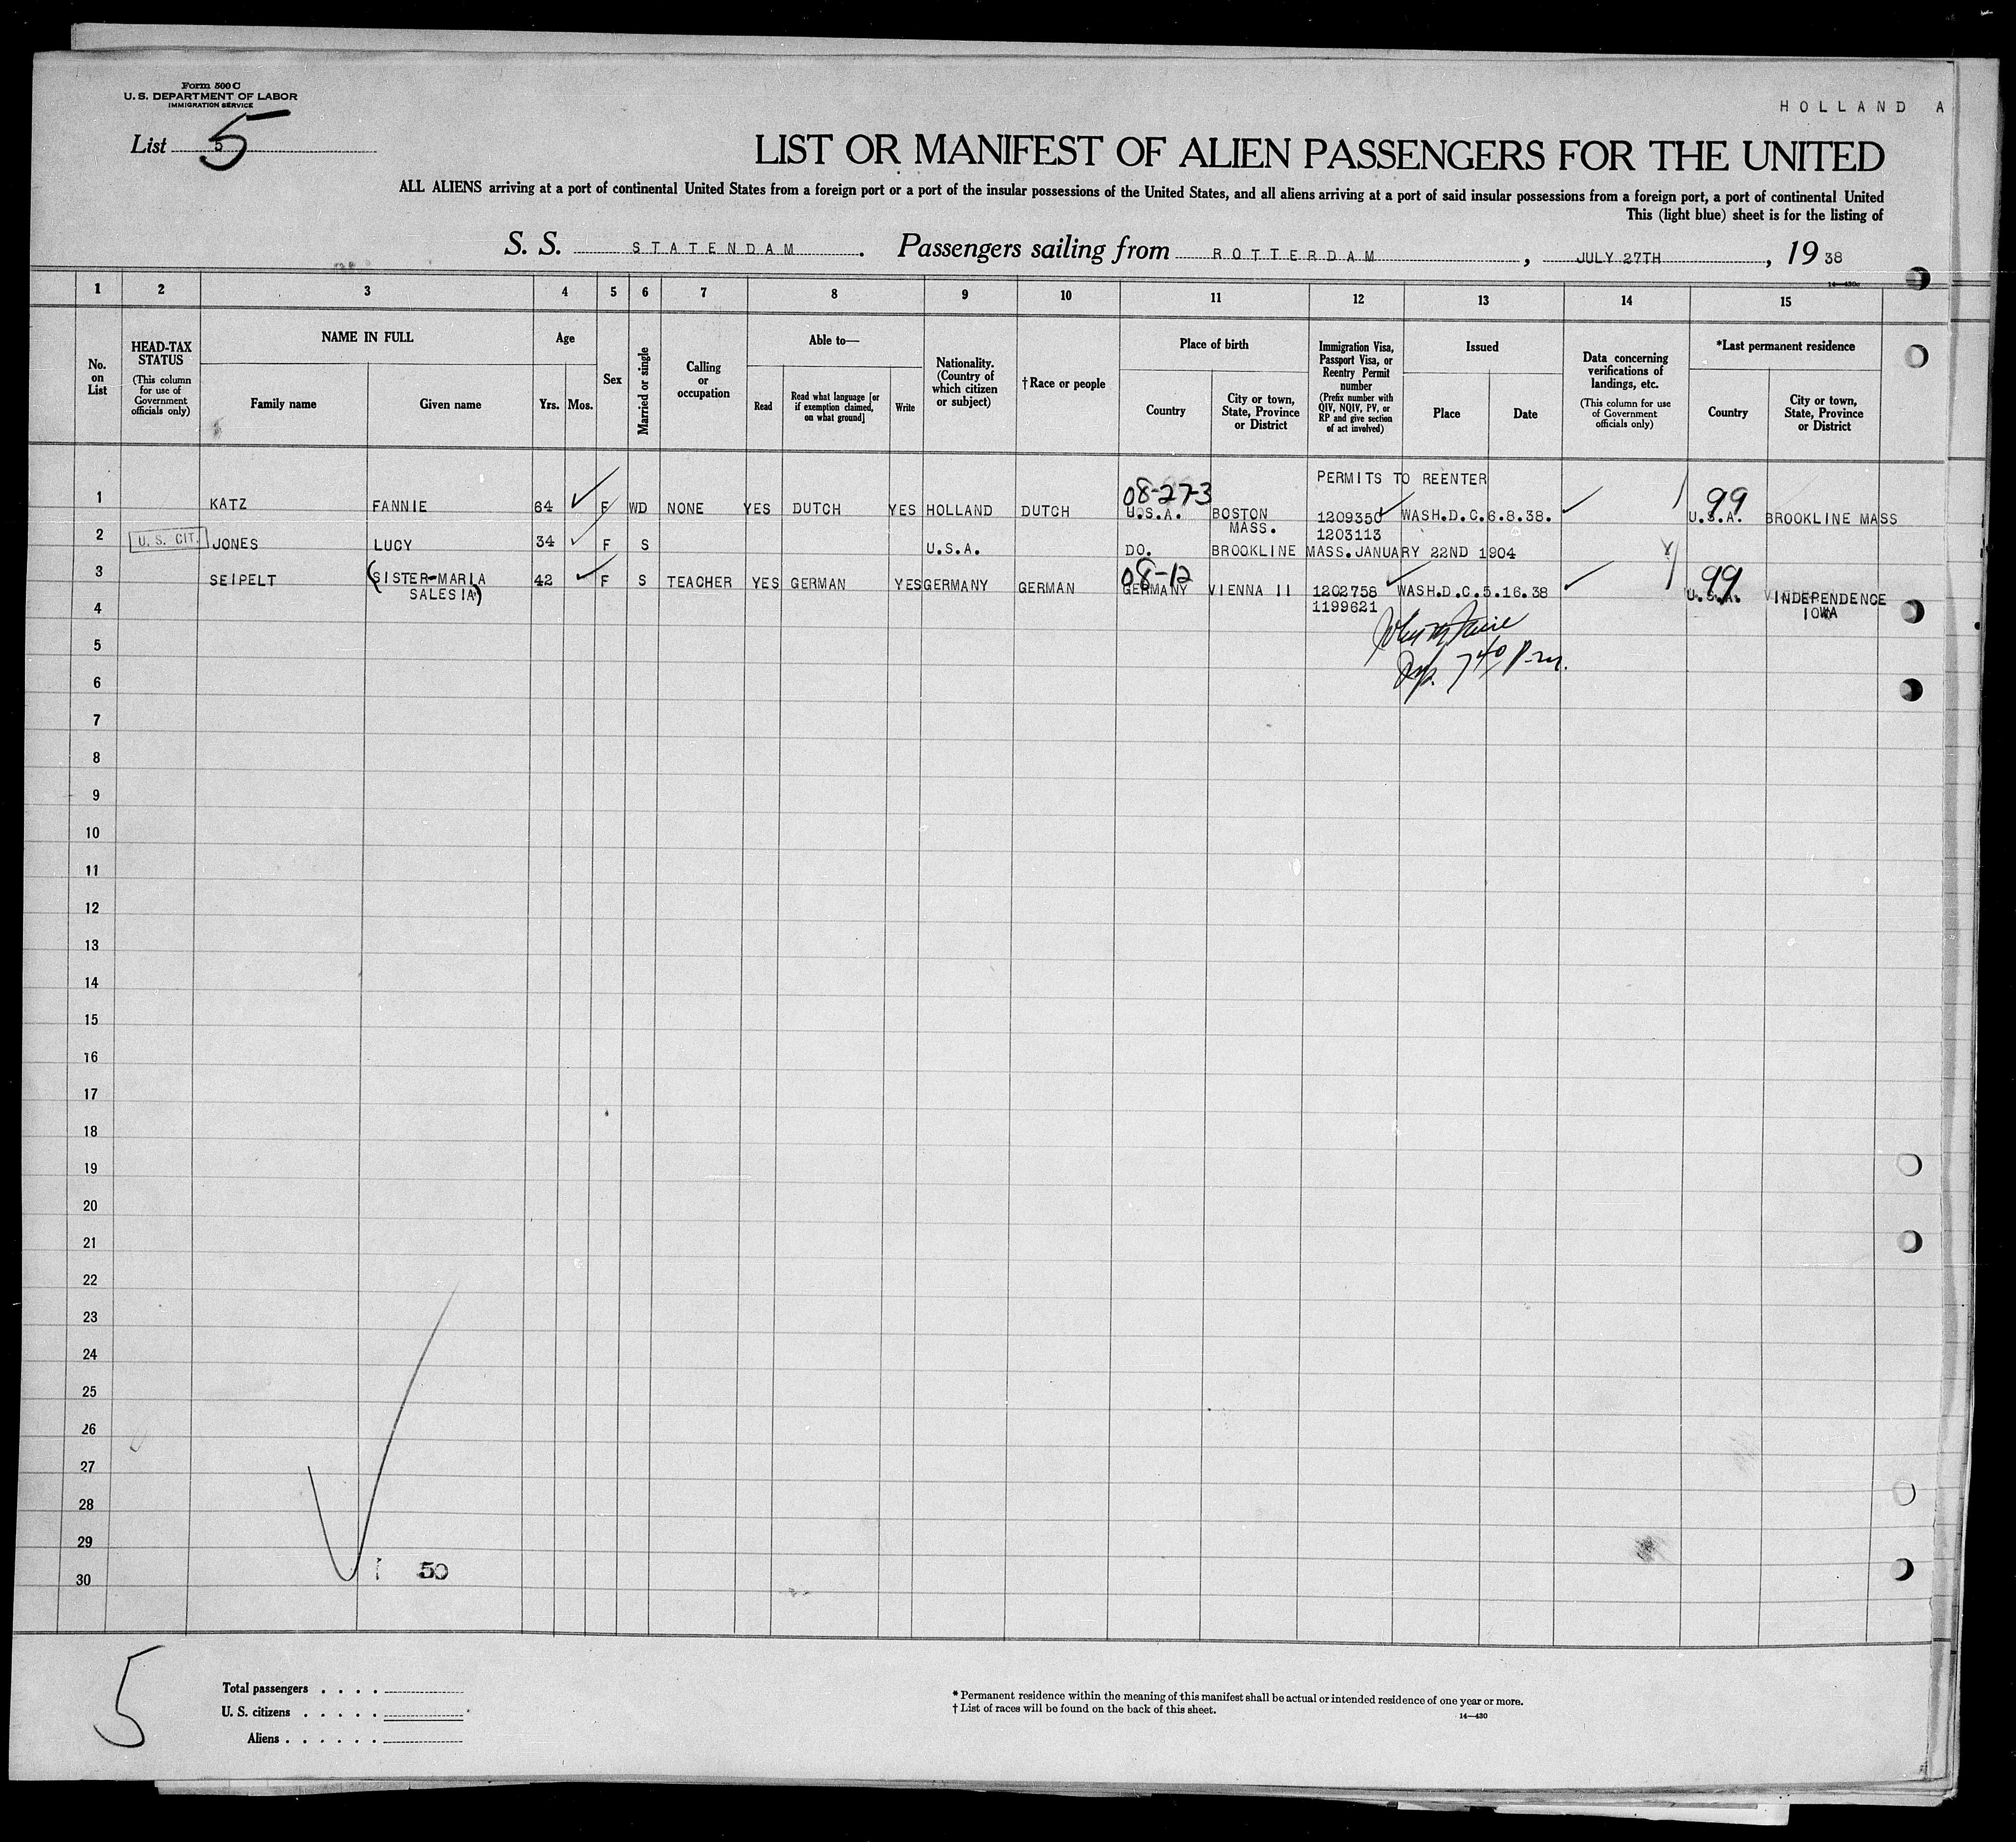 Form 500 C
U. S. DEPARTMENT OF LABOR
IMMIGRATION SERVICE
HOLLAND A
List 5 5
LIST OR MANIFEST OF ALIEN PASSENGERS FOR THE UNITED
ALL ALIENS arriving at a port of continental United States from a foreign port or a port of the insular possessions of the United States, and all aliens arriving at a port of said insular possessions from a foreign port, a port of continental United
This (light blue) sheet is for the listing of
S. S. STATENDAM. Passengers sailing from ROTTERDAM, JULY 27TH, 19 38
1 2 3 4 5 6 7 8 9 10 11 12 13 14 15
No. on List
HEAD-TAX STATUS
(This column for use of Government officials only)
NAME IN FULL
Family name Given name
Age
Yrs. Mos.
Sex
Married or single
Calling or occupation
Able to—
Read
Read what language [or if exemption claimed, on what ground]
Write
Nationality. (Country of which citizen or subject)
†Race or people
Place of birth
Country
City or town, State, Province or District
Immigration Visa, Passport Visa, or Reentry Permit number
(Prefix number with QIV, NQIV, PV, or RP and give section of act involved)
Issued
Place Date
Data concerning verifications of landings, etc.
(This column for use of Government officials only)
*Last permanent residence
Country
City or town, State, Province or District
PERMITS TO REENTER
08-27-3 99
1 KATZ FANNIE 64 F WD NONE YES DUTCH YES HOLLAND DUTCH U.S.A. BOSTON MASS. 1209350 WASH.D.C. 6.8.38. U.S.A. BROOKLINE MASS
1203113
2 U. S. CIT. JONES LUCY 34 F S U.S.A. DO. BROOKLINE MASS. JANUARY 22ND 1904
08-12 99
3 SEIPELT (SISTER-MARIA SALESIA) 42 F S TEACHER YES GERMAN YES GERMANY GERMAN GERMANY VIENNA II 1202758 WASH.D.C. 5.16.38 U.S.A. INDEPENDENCE IOWA
1199621
4
5
7 40 P.m.
6
7
8
9
10
11
12
13
14
15
16
17
18
19
20
21
22
23
24
25
26
27
28
29
50
30
5
Total passengers . . . .
U. S. citizens . . . . .
Aliens . . . . . .
* Permanent residence within the meaning of this manifest shall be actual or intended residence of one year or more.
† List of races will be found on the back of this sheet.
14—430